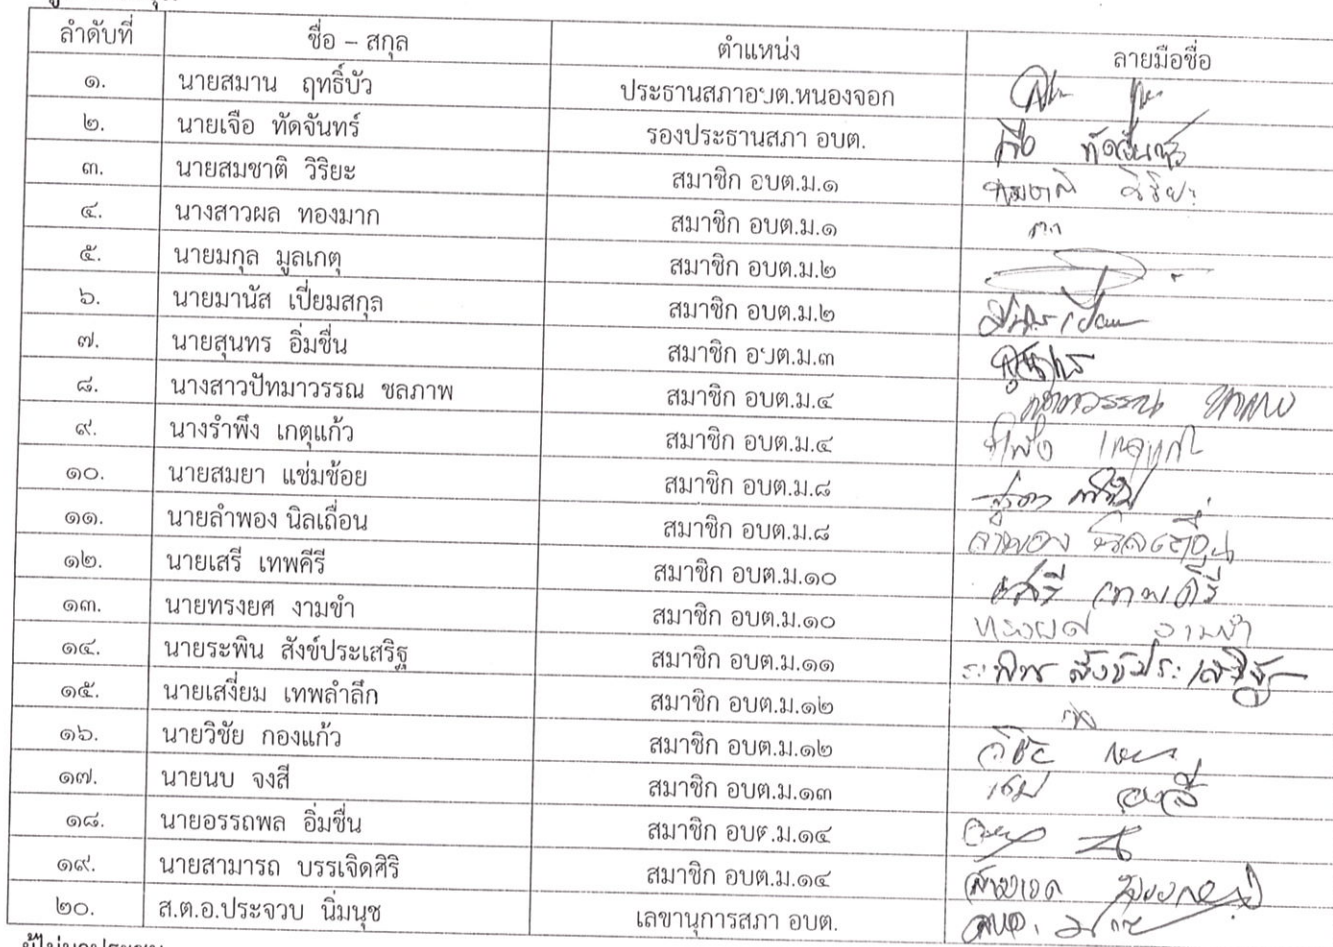 ลำดับที่ ชื่อ – สกุล ตำแหน่ง ลายมือชื่อ
๑. นายสมาน ฤทธิ์บัว ประธานสภาอบต.หนองจอก
๒. นายเจือ ทัดจันทร์ รองประธานสภา อบต. เจือ ทัดจันทร์
๓. นายสมชาติ วิริยะ สมาชิก อบต.ม.๑ สมชาติ วิริยะ
๔. นางสาวผล ทองมาก สมาชิก อบต.ม.๑
๕. นายมกุล มูลเกตุ สมาชิก อบต.ม.๒
๖. นายมานัส เปี่ยมสกุล สมาชิก อบต.ม.๒
๗. นายสุนทร อิ่มชื่น สมาชิก อบต.ม.๓ สุนทร
๘. นางสาวปัทมาวรรณ ชลภาพ สมาชิก อบต.ม.๔
๙. นางรำพึง เกตุแก้ว สมาชิก อบต.ม.๔
๑๐. นายสมยา แช่มช้อย สมาชิก อบต.ม.๘
๑๑. นายลำพอง นิลเถื่อน สมาชิก อบต.ม.๘ ลำพอง นิลเถื่อน
๑๒. นายเสรี เทพคีรี สมาชิก อบต.ม.๑๐ เสรี เทพคีรี
๑๓. นายทรงยศ งามขำ สมาชิก อบต.ม.๑๐ ทรงยศ งามขำ
๑๔. นายระพิน สังข์ประเสริฐ สมาชิก อบต.ม.๑๑ ระพิน สังข์ประเสริฐ
๑๕. นายเสงี่ยม เทพลำลึก สมาชิก อบต.ม.๑๒
๑๖. นายวิชัย กองแก้ว สมาชิก อบต.ม.๑๒ วิชัย
๑๗. นายนบ จงสี สมาชิก อบต.ม.๑๓ นบ จงสี
๑๘. นายอรรถพล อิ่มชื่น สมาชิก อบต.ม.๑๔
๑๙. นายสามารถ บรรเจิดศิริ สมาชิก อบต.ม.๑๔
๒๐. ส.ต.อ.ประจวบ นิ่มนุช เลขานุการสภา อบต.